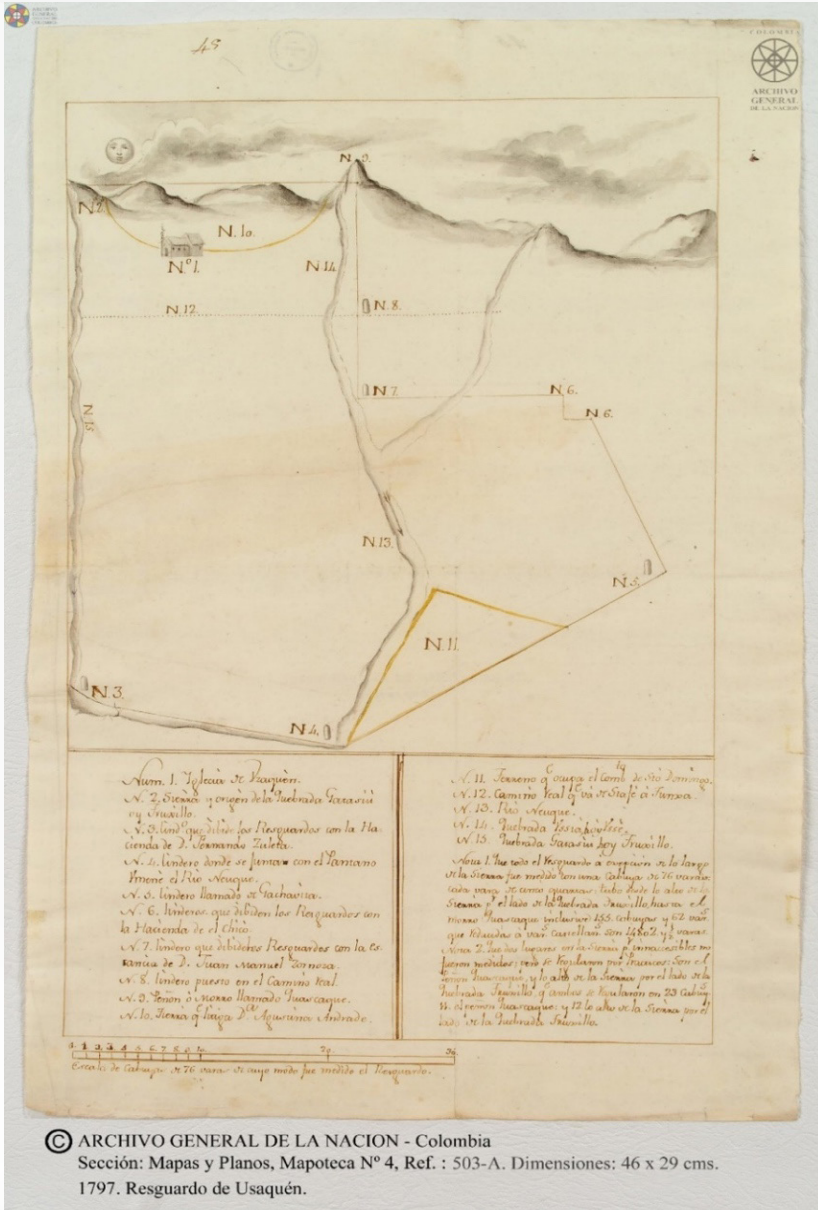 ARCHIVO
GENERAL
45
COLOMBIA
ARCHIVO
GENERAL
DE LA NACION
N. 9.
N. 2.
N. 10.
N.º 1.
N 14.
N. 12.
N. 8.
N. 7.
N. 6.
N. 6.
N. 15
N. 13.
N. 5.
N. 11.
N. 3.
N. 4.
Num. 1. Yglecia de Usaquèn.
N. 2. Sierra y origen de la Quebrada Garasiu
oy Truxillo.
N. 3. Lindº que dibide los Resguardos con la Ha-
cienda de D. Fernando Zuleta.
N. 4. Lindero donde se juntan con el Pantano
el Rio Neuque.
N. 5. Lindero llamado de Gachavita.
N. 6. Linderos que dibiden los Resguardos con
la Hacienda de el Chico.
N. 7. Lindero que dibide los Resguardos con la es-
tancia de D. Juan Manuel Zornosa.
N. 8. Lindero puesto en el Camino Real.
N. 9. Peñon ò Morro llamado Guascaque.
N. 10. Tierra q. Dª Agustina Andrade.
N. 11. Terreno q. ocupa el Combtº de Stò Domingo.
N. 12. Camino Real q. và de Stafe à Tunxa.
N. 13. Rio Neuque.
N. 14. Quebrada
N. 15. Quebrada Garasiu hoy Truxillo.
Nota 1. Que todo el Resguardo a excepcion de lo largo
de la Sierra fue medido con una Cabuya de 76 varas
cada vara de cinco quartas: tubo desde lo alto de la
Sierra pr. el lado de la Quebrada Truxillo, hasta el
morro Guascaque inclusive 155 cabuyas y 62 vars.
que reducidas a vars. castellans. son 14802 y ½ varas
Nota 2. Que dos lugares en la Sierra pr. innaccesibles no
fueron medidos; pero se regularon por Practicos: Son el
Peñon Guascaque, y lo alto de la Sierra por el lado de la
Quebrada Truxillo, q. ambos se regularon en 23 Cabuy
11. el peñon Guascaque; y 12 lo alto de la Sierra por el
lado de la Quebrada Truxillo.
1 2 3 4 5 6 7 8 9 10 20 30
Escala de Cabuyas de 76 varas de cuyo modo fue medido el Resguardo.
© ARCHIVO GENERAL DE LA NACION - Colombia
Sección: Mapas y Planos, Mapoteca Nº 4, Ref. : 503-A. Dimensiones: 46 x 29 cms.
1797. Resguardo de Usaquén.